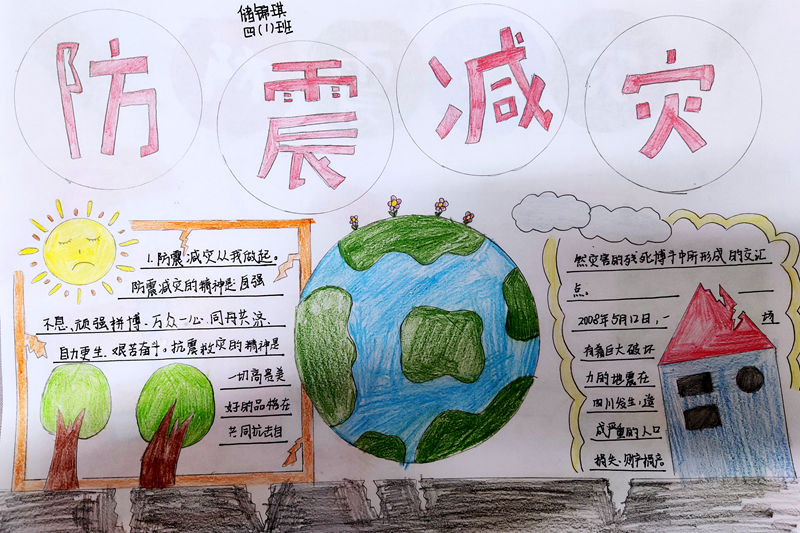 储锦琪
四(1)班
防震减灾
1.防震减灾从我做起。
防震减灾的精神是自强
不息、顽强拼搏、万众一心、同舟共济、
自力更生、艰苦奋斗。抗震救灾的精神是
一切高最美
好的品格在
共同抗击自
然灾害的殊死搏斗中所形成的交汇
点。
2008年5月12日,一场
有着巨大破坏
力的地震在
四川发生,造
成严重的人口
损失、财产损失